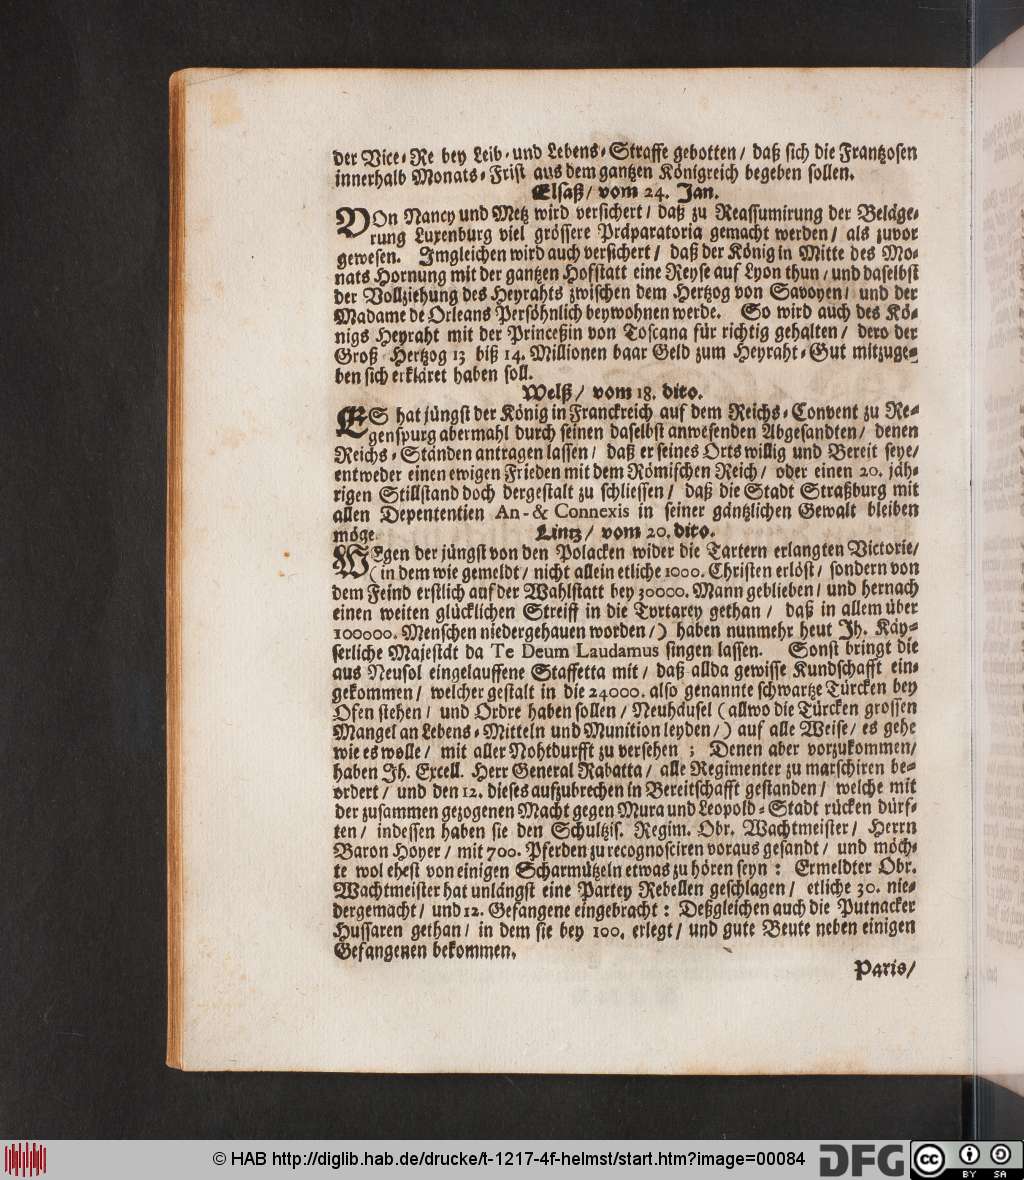 der Vice-Re bey Leib- und Lebens-Straffe gebotten / daß sich die Frantzosen
innerhalb Monats-Frist aus dem gantzen Königreich begeben sollen.
Elsaß / vom 24. Jan.
VOn Nancy und Metz wird versichert / daß zu Reassumirung der Beläge-
rung Luxenburg viel grössere Präparatoria gemacht werden / als zuvor
gewesen. Imgleichen wird auch versichert / daß der König in Mitte des Mo-
nats Hornung mit der gantzen Hofstatt eine Reyse auf Lyon thun / und daselbst
der Vollziehung des Heyrahts zwischen dem Hertzog von Savoyen / und der
Madame de Orleans Persöhnlich beywohnen werde. So wird auch des Kö-
nigs Heyraht mit der Princeßin von Toscana für richtig gehalten / dero der
Groß-Hertzog 13 biß 14. Millionen baar Geld zum Heyraht-Gut mitzuge-
ben sich erkläret haben soll.
Welß / vom 18. dito.
ES hat jüngst der König in Franckreich auf dem Reichs-Convent zu Re-
genspurg abermahl durch seinen daselbst anwesenden Abgesandten / denen
Reichs-Ständen antragen lassen / daß er seines Orts willig und Bereit seye /
entweder einen ewigen Frieden mit dem Römischen Reich / oder einen 20. jäh-
rigen Stillstand doch dergestalt zu schliessen / daß die Stadt Straßburg mit
allen Depententien An- & Connexis in seiner gäntzlichen Gewalt bleiben
möge. Lintz / vom 20. dito.
WEgen der jüngst von den Polacken wider die Tartern erlangten Victorie /
(in dem wie gemeldt / nicht allein etliche 1000. Christen erlöst / sondern von
dem Feind erstlich auf der Wahlstatt bey 30000. Mann geblieben / und hernach
einen weiten glücklichen Streiff in die Tartarey gethan / daß in allem über
100000. Menschen niedergehauen worden /) haben nunmehr heut Jh. Käy-
serliche Majestät da Te Deum Laudamus singen lassen. Sonst bringt die
aus Neusol eingelauffene Staffetta mit / daß allda gewisse Kundschafft ein-
gekommen / welcher gestalt in die 24000. also genannte schwartze Türcken bey
Ofen stehen / und Ordre haben sollen / Neuhäusel (allwo die Türcken grossen
Mangel an Lebens-Mitteln und Munition leyden /) auf alle Weise / es gehe
wie es wolle / mit aller Nohtdurfft zu versehen ; Denen aber vorzukommen /
haben Jh. Excell. Herr General Rabatta / alle Regimenter zu marschiren be-
ordert / und den 12. dieses aufzubrechen in Bereitschafft gestanden / welche mit
der zusammen gezogenen Macht gegen Mura und Leopold-Stadt rücken dürf-
ten / indessen haben sie den Schultzis. Regim. Obr. Wachtmeister / Herrn
Baron Hoyer / mit 700. Pferden zu recognosciren voraus gesandt / und möch-
te wol ehest von einigen Scharmützeln etwas zu hören seyn : Ermeldter Obr.
Wachtmeister hat unlängst eine Partey Rebellen geschlagen / etliche 30. nie-
dergemacht / und 12. Gefangene eingebracht : Deßgleichen auch die Putnacker
Hussaren gethan / in dem sie bey 100. erlegt / und gute Beute neben einigen
Gefangenen bekommen.
Paris /
© HAB http://diglib.hab.de/drucke/t-1217-4f-helmst/start.htm?image=00084
DFG
cc BY SA